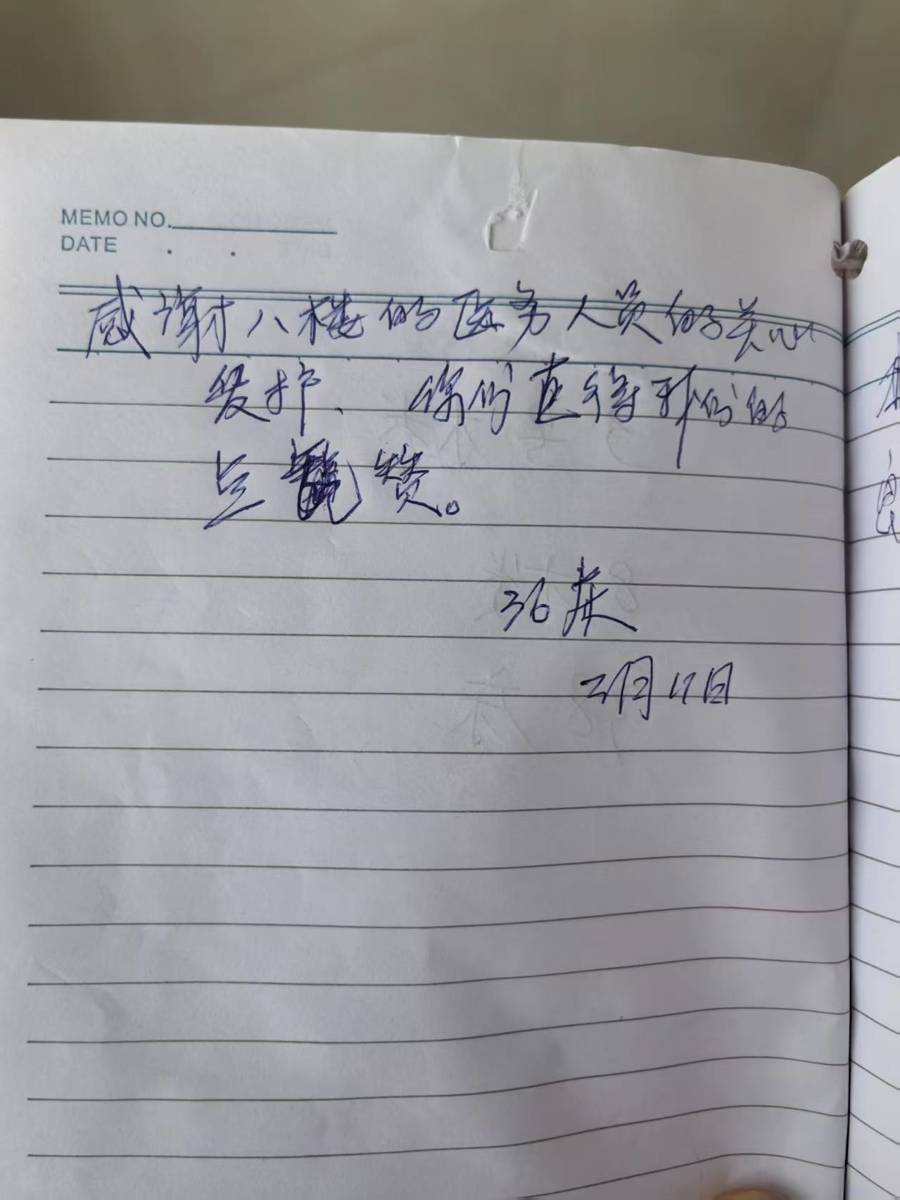 MEMO NO.
DATE . .
感谢八楼的医务人员的关心
爱护、你们直待我们的
点赞。
36床
2月17日